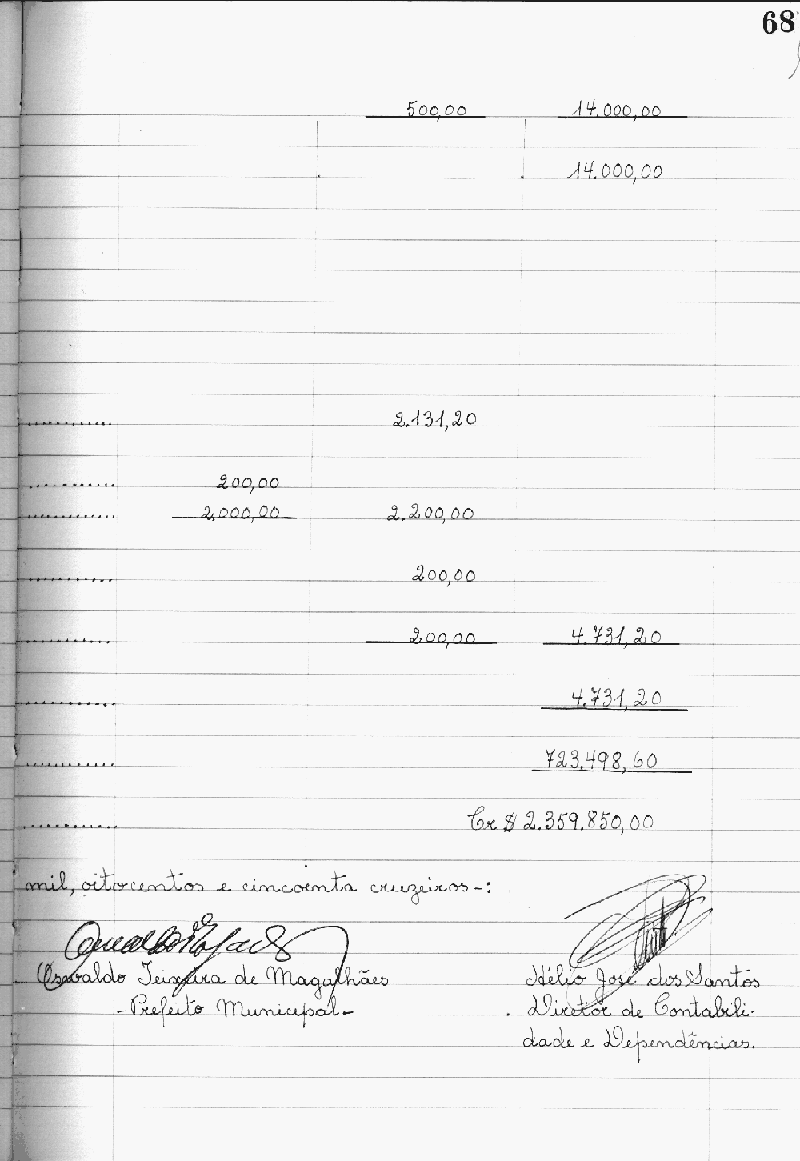 68
500,00 14.000,00
14.000,00
.............. 2.131,20
.............. 200,00
.............. 2.000,00 2.200,00
.............. 200,00
.............. 200,00 4.731,20
.............. 4.731,20
.............. 723.498,60
.............. Cr $ 2.359.850,00
mil, oitocentos e cincoenta cruzeiros-:
Oswaldo Teixeira de Magalhães Hélio José dos Santos
-Prefeito Municipal- Diretor de Contabili-
dade e Dependências.